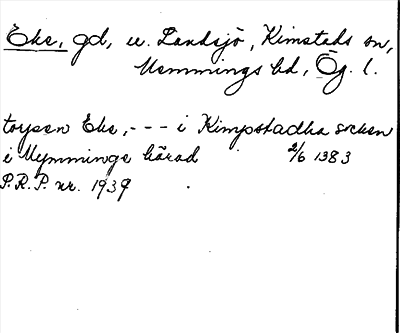 Eke, gd, u. Landsjö, Kimstads sn,
Memmings hd, Ög. l.
torpen Eke, - - - i Kimpstadha socken
i Mymminge härad 2/6 1383
P.R.P. nr. 1939